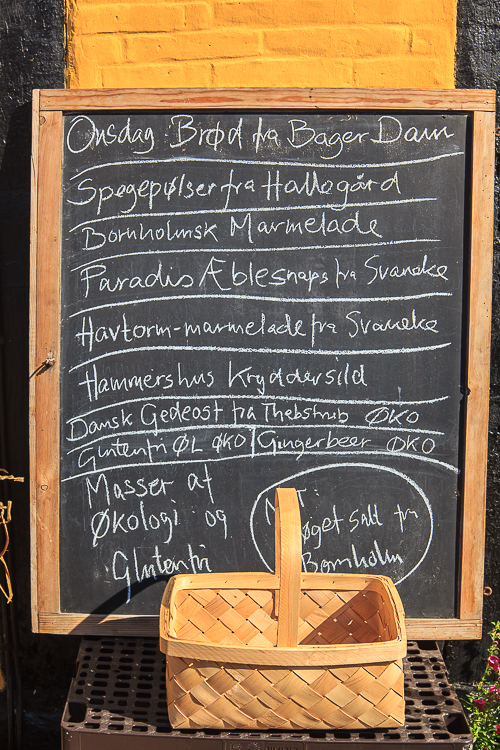 Onsdag Brød fra Bager Dam
Spegepølser fra Hallegård
Bornholmsk Marmelade
Paradis Æblesnaps fra Svaneke
Havtorn-marmelade fra Svaneke
Hammershus Kryddersild
Dansk Gedeost fra ØKO
Glutenfri ØL ØKO Gingerbeer ØKO
Masser af
Økologi og
Glutenfri
salt fra
Bornholm